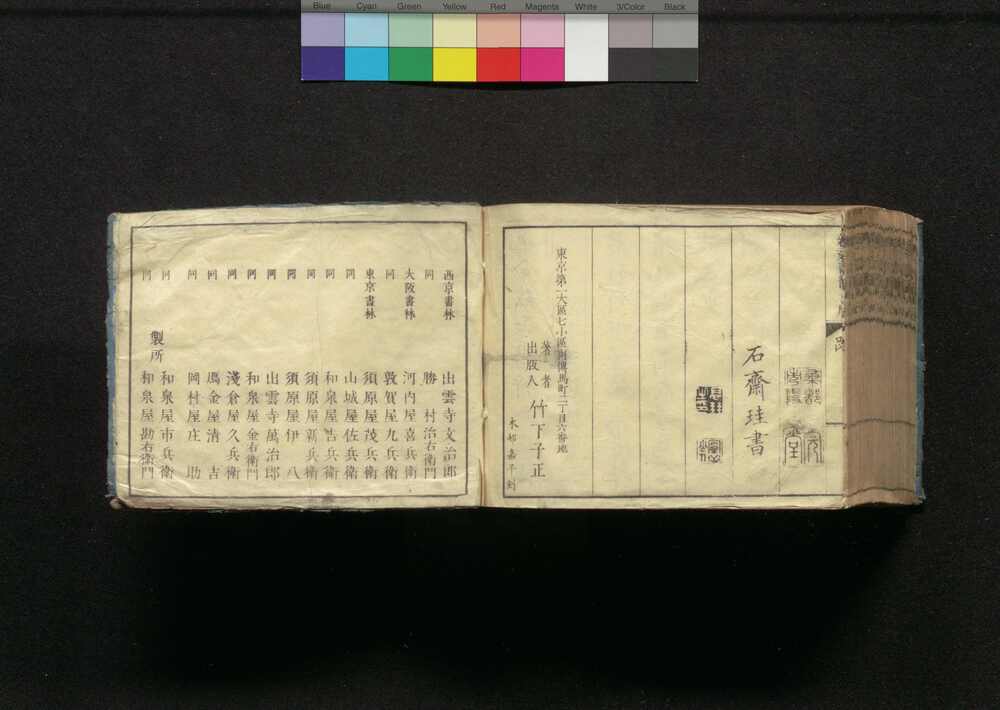 Blue Cyan Green Yellow Red Magenta White 3/Color Black
石齋珪書
東京第一大區七小區南傳馬町二丁目六番地
著者
出版人
竹下子正
木邨嘉平刻
西京書林 出雲寺文治郎
同 勝村治右衛門
大阪書林 河内屋喜兵衛
同 敦賀屋九兵衛
東京書林 須原屋茂兵衛
同 山城屋佐兵衛
同 和泉屋吉兵衛
同 須原屋新兵衛
同 須原屋伊八
同 出雲寺萬治郎
同 和泉屋金右衛門
同 淺倉屋久兵衛
同 鴈金屋清吉
同 岡村屋庄助
同 和泉屋市兵衛
同 製所 和泉屋勘右衛門